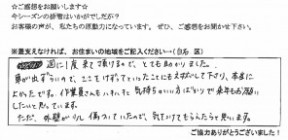 ☆ご感想をお願いします☆
今シーズンの排雪はいかがでしたか？
お客様の声が、私たちの原動力になっています。ぜひ、ご感想をお聞かせ下さい。
※差支えなければ、お住まいの地域をご記入ください→（白石 区）
週に1度まで頂けるので、とても助かりました。
車が出ずらいので、ここをけずってていったことにもえがおで して下さり、本当に
よかったです。作業員さんもハキハキと気持ちがいい方ばかりで来年もお願い
したいたいです。
ただ、外壁が少し傷ついていたので、気を付けてもらえたらと思います。
ご協力ありがとうございました！